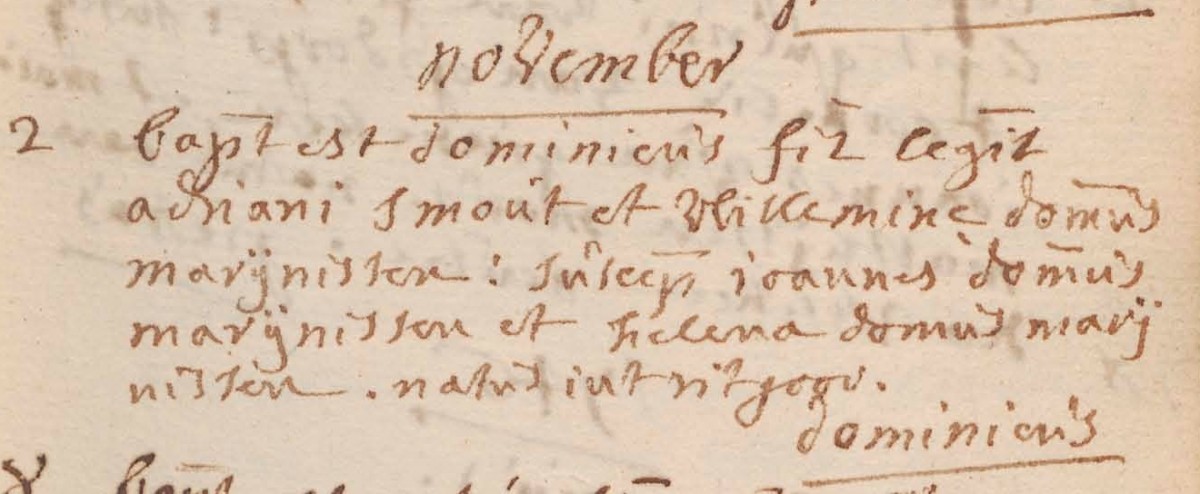 november
2 bapt est dominicus fil legit
adriani smout et Willemine domus
marijnissen : suscep ioannes domus
marijnissen et helena domus marij
nissen . natus int
dominicus